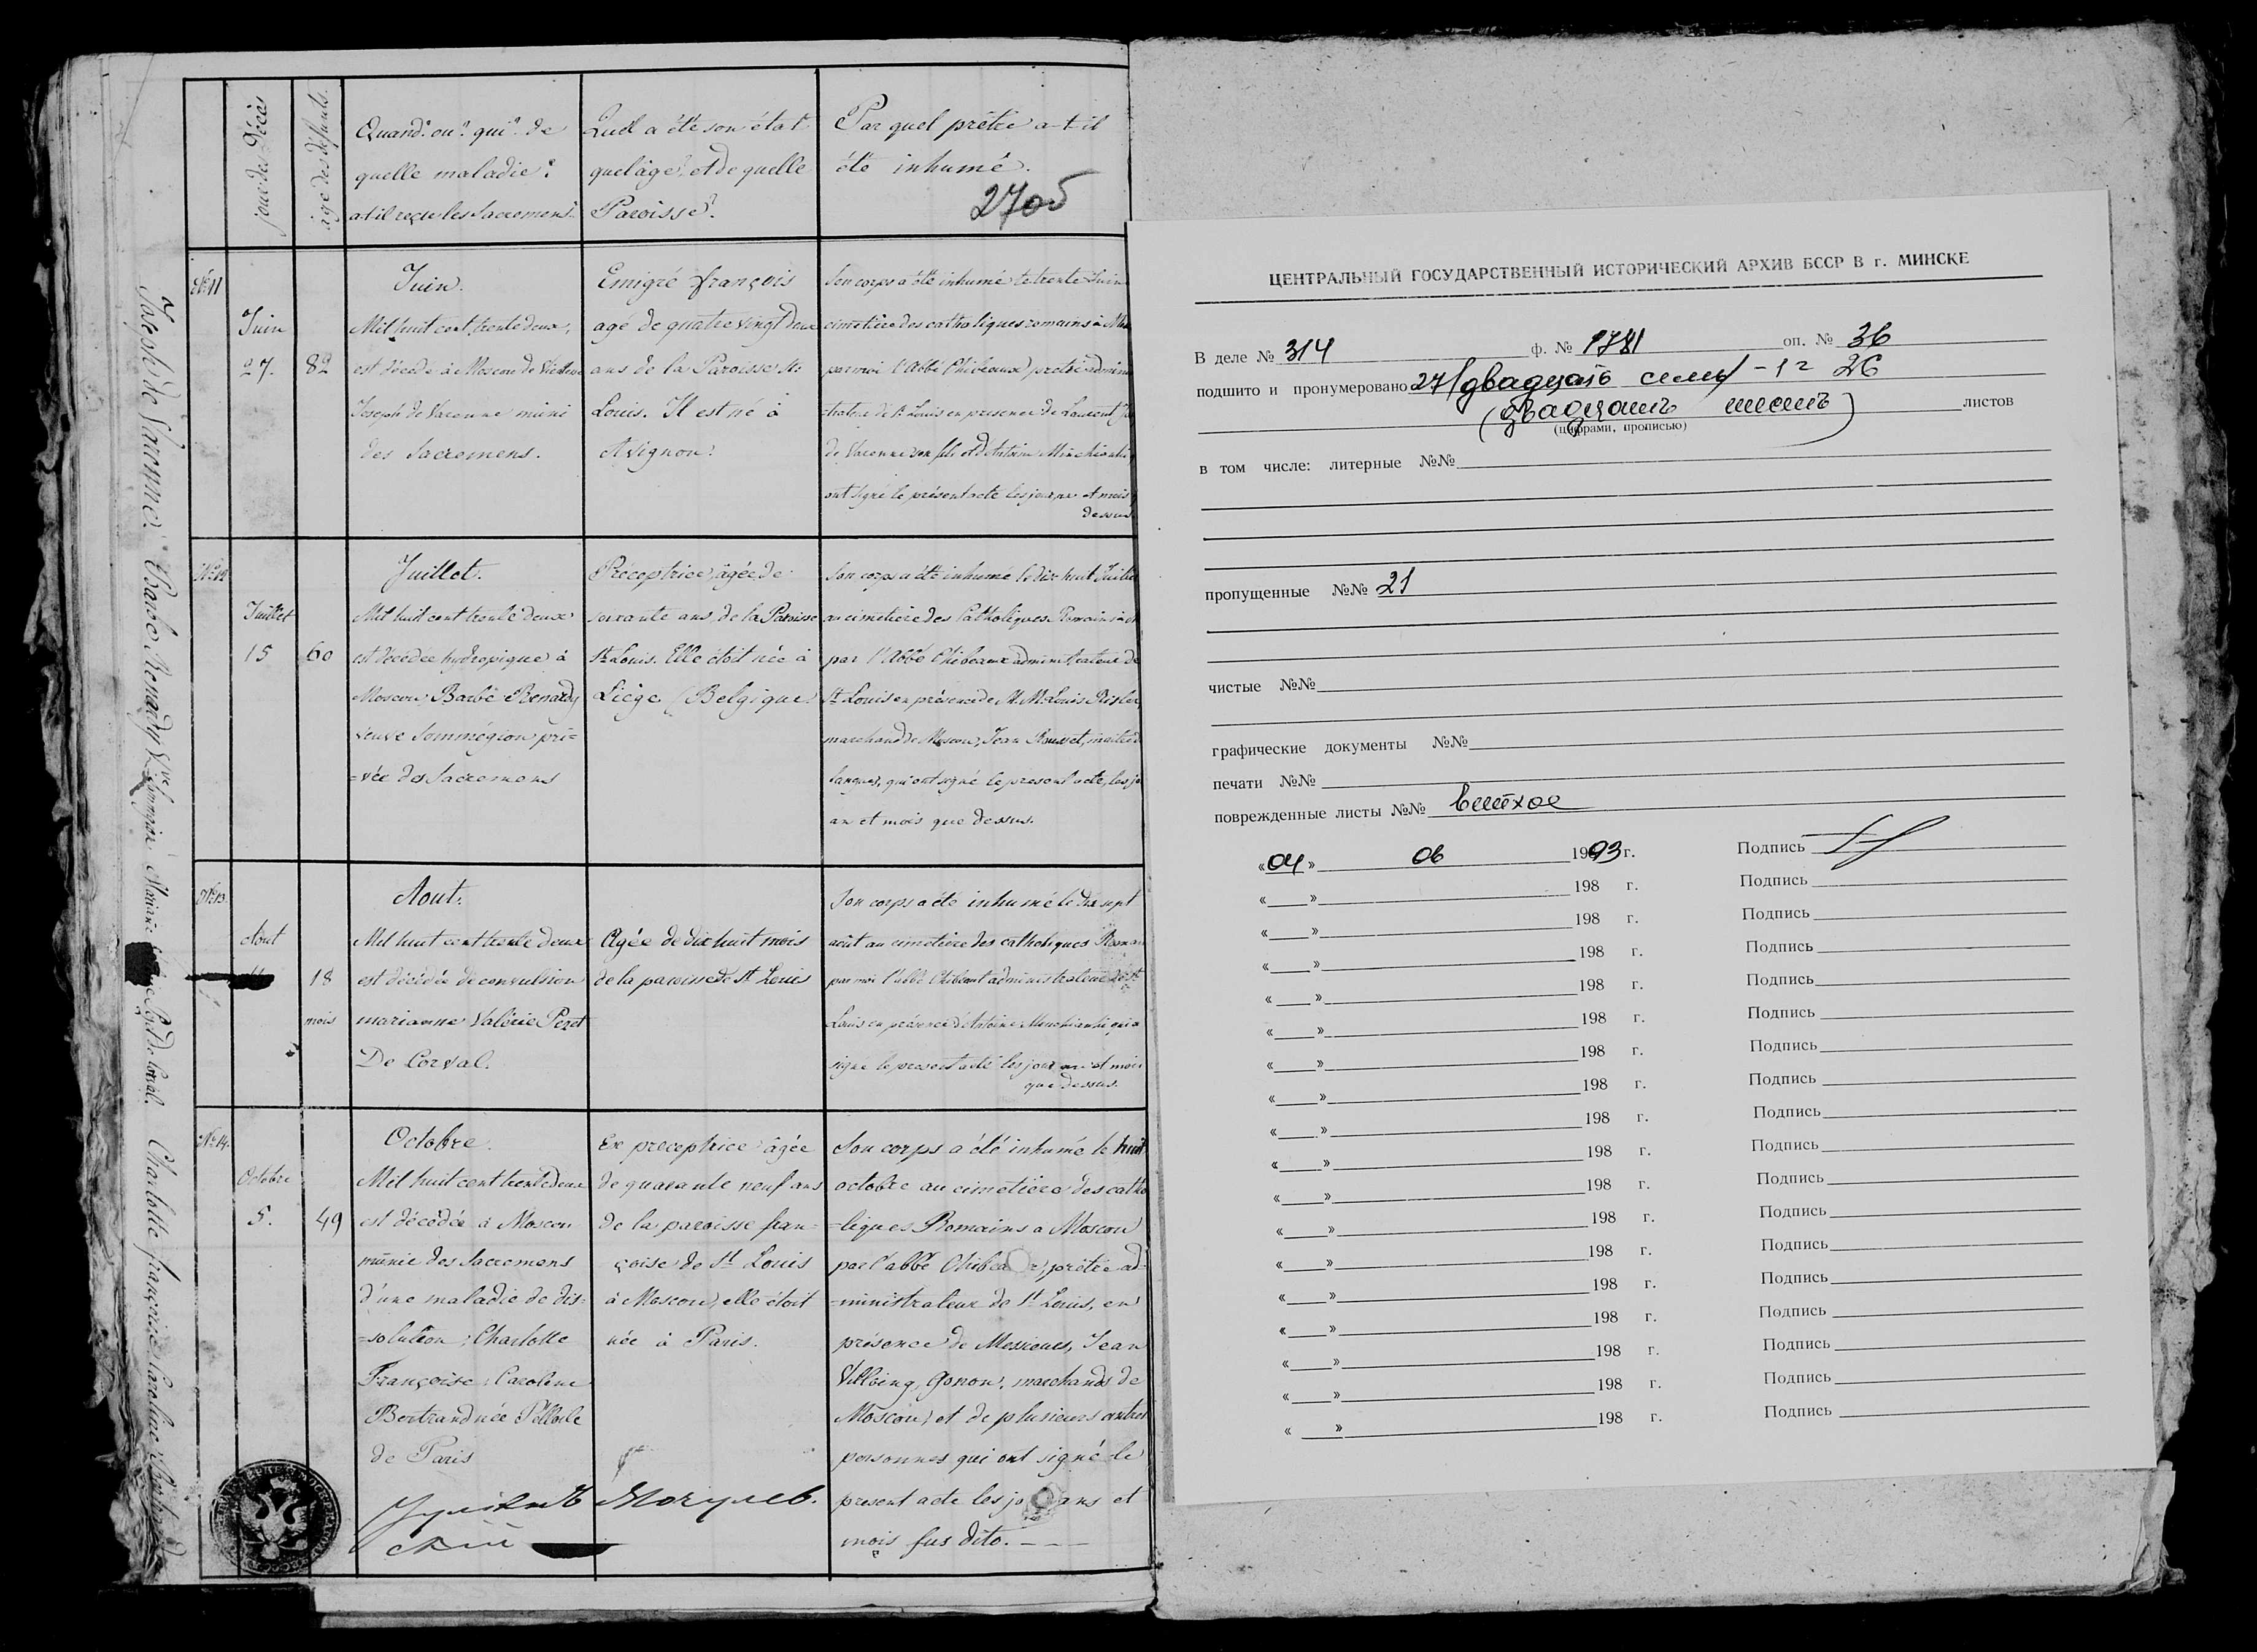 jour des Décès
âge des défunts.
Quand? ou? qui? de
quelle maladie?
a-t-il reçu les Sacremens?
Quel a été son état
quel âge? et de quelle
Paroisse?
Par quel prêtre a-t-il
été inhumé.
27об
№ 11
Juin
27.
82
Juin.
Mil huit cent trente deux,
est décédé à Moscou de Vieillesse
Joseph de Varenne muni
des Sacremens.
Emigré françois
agé de quatre vingt deux
ans de la Paroisse St.
Louis. Il est né à
Avignon.
Son corps a été inhumé le trente Juin
cimetière des catholiques romains à
par moi l'Abbé Chibeaux prêtre admini
=trateur de St Louis en presence de Laurent
de Varenne son fils et d'Antoine
ont signé le présent acte les jour, an et mois
dessus.
№ 12
Juillet
15
60
Juillet.
Mil huit cent trente deux
est décédée hydropique à
Moscou Barbe Renardy
veuve Sommégion pri=
=vée des Sacremens
Préceptrice, âgée de
soixante ans, de la Paroisse
St Louis. Elle étoit née à
Liège (Belgique
Son corps a été inhumé le dix huit Juillet
au cimetière des Catholiques Romains à
par l'Abbé Chibeaux administrateur de
St Louis en présence de M.M. Louis Risler,
marchand de Moscou, Jean Rousset, maitre de
langues, qui ont signé le present acte, les jo
an et mois que dessus.
№ 13
Aout
18
mois
Aout.
Mil huit cent trente deux
est décédée de convulsion
marianne Valérie Peret
De Corval.
Agée de dix huit mois
de la paroisse de St Louis
Son corps a été inhumé le dix sept
août au cimetière des catholiques Romai
par moi l'abbé Chibeaux administrateur de St
Louis en présence d'Antoine qui a
signé le present acte les jour an et mois
que dessus.
№ 14.
Octobre
5.
49
Octobre.
Mil huit cent trente deux
est décédée à Moscou
munie des Sacremens
d'une maladie de dis=
=solution, Charlotte
Françoise Caroline
Bertrand née
de Paris
Ex preceptrice âgée
de quarante neuf ans
de la paroisse fran=
çoise de St Louis
à Moscou, elle étoit
née à Paris.
Son corps a été inhumé le huit
octobre au cimetière des catho
=liques Romains a Moscou
par l'abbé prêtre ad=
=ministrateur de St Louis, en
présence de Messieurs, Jean
Gonon, marchands de
Moscou, et de plusieurs autres
personnes qui ont signé le
present acte les jo ans et
mois sus dito.
Joseph de Varenne. Barbe Renardy Vve Charlotte françoise Caroline
ЦЕНТРАЛЬНЫЙ ГОСУДАРСТВЕННЫЙ ИСТОРИЧЕСКИЙ АРХИВ БССР В г. МИНСКЕ
В деле № 314 ф. № 1781 оп. № 36
подшито и пронумеровано 27 (двадцать семь) - 1 = 26
(двадцать шесть) листов
(цифрами, прописью)
в том числе: литерные №№
пропущенные №№ 21
чистые №№
графические документы №№
печати №№
поврежденные листы №№ ветхое
«04» 06 1993 г. Подпись
« » 198 г. Подпись
« » 198 г. Подпись
« » 198 г. Подпись
« » 198 г. Подпись
« » 198 г. Подпись
« » 198 г. Подпись
« » 198 г. Подпись
« » 198 г. Подпись
« » 198 г. Подпись
« » 198 г. Подпись
« » 198 г. Подпись
« » 198 г. Подпись
« » 198 г. Подпись
« » 198 г. Подпись
« » 198 г. Подпись
« » 198 г. Подпись
« » 198 г. Подпись